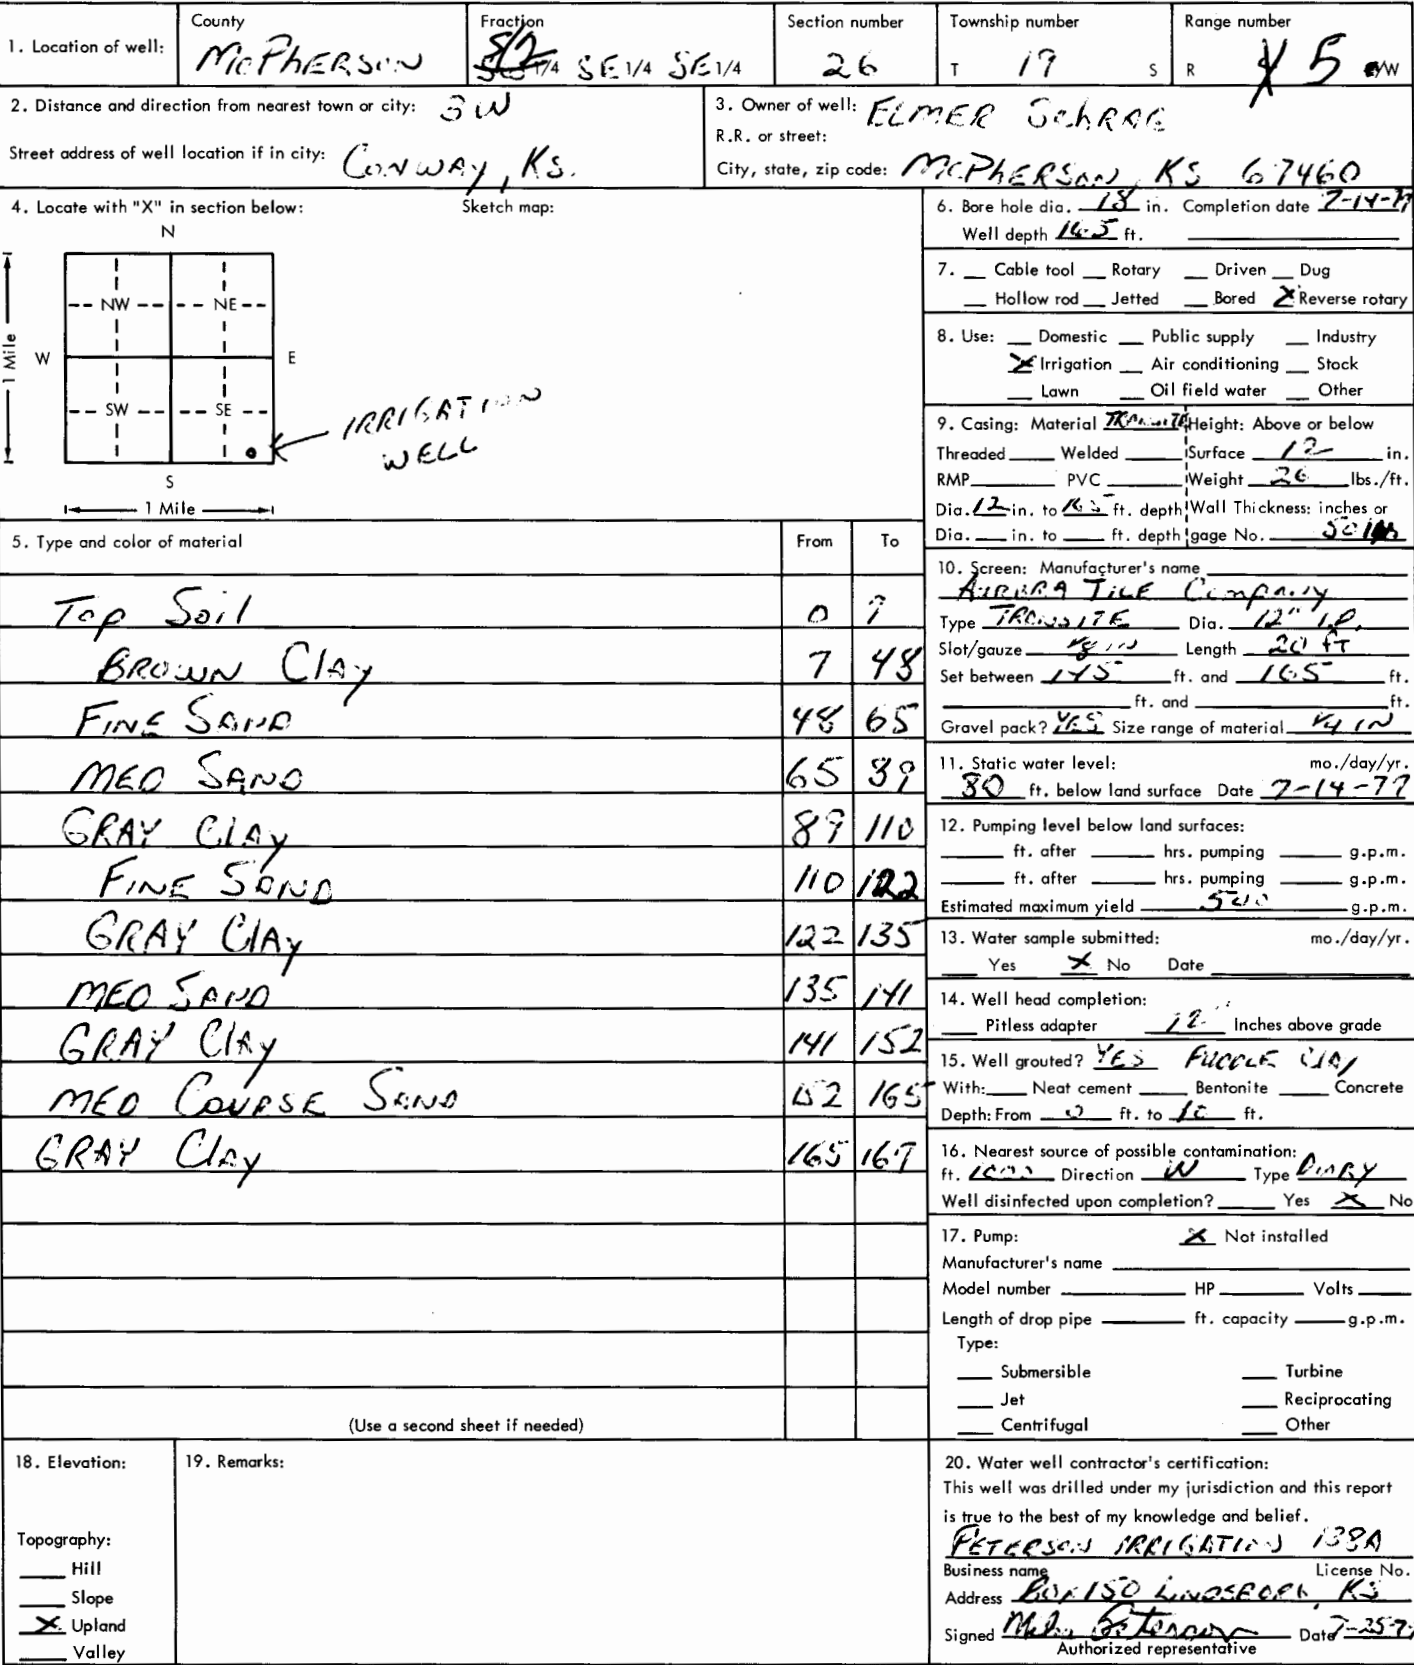 1. Location of well:
County
McPHERSON
Fraction
S/2 1/4 SE 1/4 SE 1/4
Section number
26
Township number
T 19 S
Range number
R 5 W
2. Distance and direction from nearest town or city: 3W
Street address of well location if in city: CONWAY, KS.
3. Owner of well: ELMER SCHRAG
R.R. or street:
City, state, zip code: McPHERSON KS 67460
4. Locate with "X" in section below:
Sketch map:
N
NW NE
W E
1 Mile
SW SE
S
1 Mile
IRRIGATION
WELL
5. Type and color of material From To
Top Soil 0 7
BROWN Clay 7 48
FINE SAND 48 65
MED SAND 65 89
GRAY Clay 89 110
FINE SAND 110 122
GRAY Clay 122 135
MED SAND 135 141
GRAY Clay 141 152
MED COURSE SAND 152 165
GRAY Clay 165 167
(Use a second sheet if needed)
6. Bore hole dia. 18 in. Completion date 7-14-77
Well depth 165 ft.
7. Cable tool Rotary Driven Dug
Hollow rod Jetted Bored X Reverse rotary
8. Use: Domestic Public supply Industry
X Irrigation Air conditioning Stock
Lawn Oil field water Other
9. Casing: Material TRANSITE Height: Above or below
Threaded Welded Surface 12 in.
RMP PVC Weight 26 lbs./ft.
Dia. 12 in. to 165 ft. depth Wall Thickness: inches or
Dia. in. to ft. depth gage No.
10. Screen: Manufacturer's name
AURORA TILE Company
Type TRANSITE Dia. 12" I.D.
Slot/gauze 1/8 IN Length 20 FT
Set between 145 ft. and 165 ft.
ft. and ft.
Gravel pack? YES Size range of material 1/4 IN
11. Static water level: mo./day/yr.
80 ft. below land surface Date 7-14-77
12. Pumping level below land surfaces:
ft. after hrs. pumping g.p.m.
ft. after hrs. pumping g.p.m.
Estimated maximum yield 500 g.p.m.
13. Water sample submitted: mo./day/yr.
Yes X No Date
14. Well head completion:
Pitless adapter 12" Inches above grade
15. Well grouted? YES PUDDLE CLAY
With: Neat cement Bentonite Concrete
Depth: From 0 ft. to 10 ft.
16. Nearest source of possible contamination:
ft. 1000 Direction W Type DIARY
Well disinfected upon completion? Yes X No
17. Pump: X Not installed
Manufacturer's name
Model number HP Volts
Length of drop pipe ft. capacity g.p.m.
Type:
Submersible Turbine
Jet Reciprocating
Centrifugal Other
18. Elevation:
Topography:
Hill
Slope
X Upland
Valley
19. Remarks:
20. Water well contractor's certification:
This well was drilled under my jurisdiction and this report
is true to the best of my knowledge and belief.
PETERSON IRRIGATION 138A
Business name License No.
Address BOX 150 LINDSBORG, KS
Signed Mike Peterson Date 7-25-77
Authorized representative